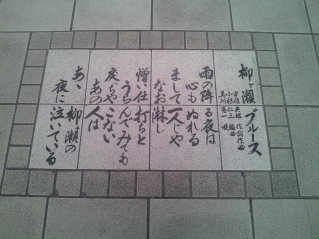 柳ヶ瀬ブルース
宇佐英雄 作詞作曲
小林仁三 編曲
美川憲一 唄
雨の降る夜は
心もぬれる
まして一人じゃ
なお淋し
憎い仕打ちと
うらんでみても
戻っちゃこない
あの人は
あゝ 柳ヶ瀬の
夜に泣いている